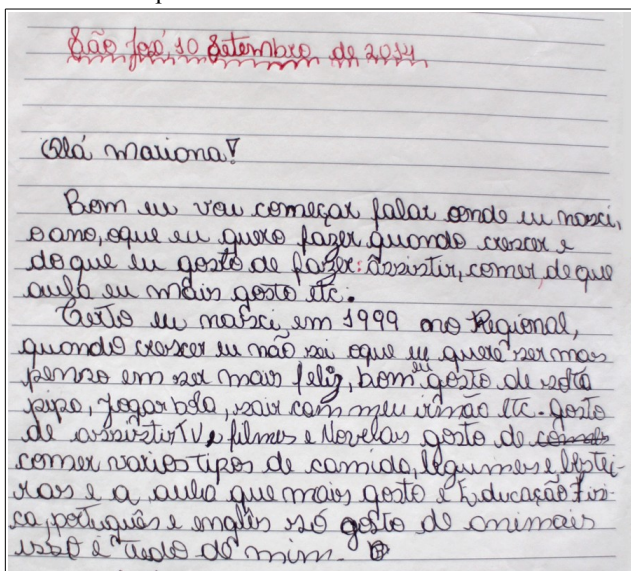 São José, 10 Setembro de 2014
Olá mariana!
Bom eu vou começar falar aonde eu nasci,
o ano, oque eu quero fazer quando crescer e
do que eu gosto de fazer: assistir, comer, de que
aula eu mais gosto etc.
Certo eu nasci, em 1999 no Regional,
quando crescer eu não sei oque eu quere ser mas
penso em ser mais feliz, bom eu gosto de solta
pipa, Jogar bola, sair com meu irmão etc. gosto
de assistir TV, filmes e Novelas gosto de comer
comer varios tipos de comida, legumes e bestei-
ras e a aula que mais gosto é Educação Fisi-
ca, português e inglês só gosto de animais
isso é tudo de mim.